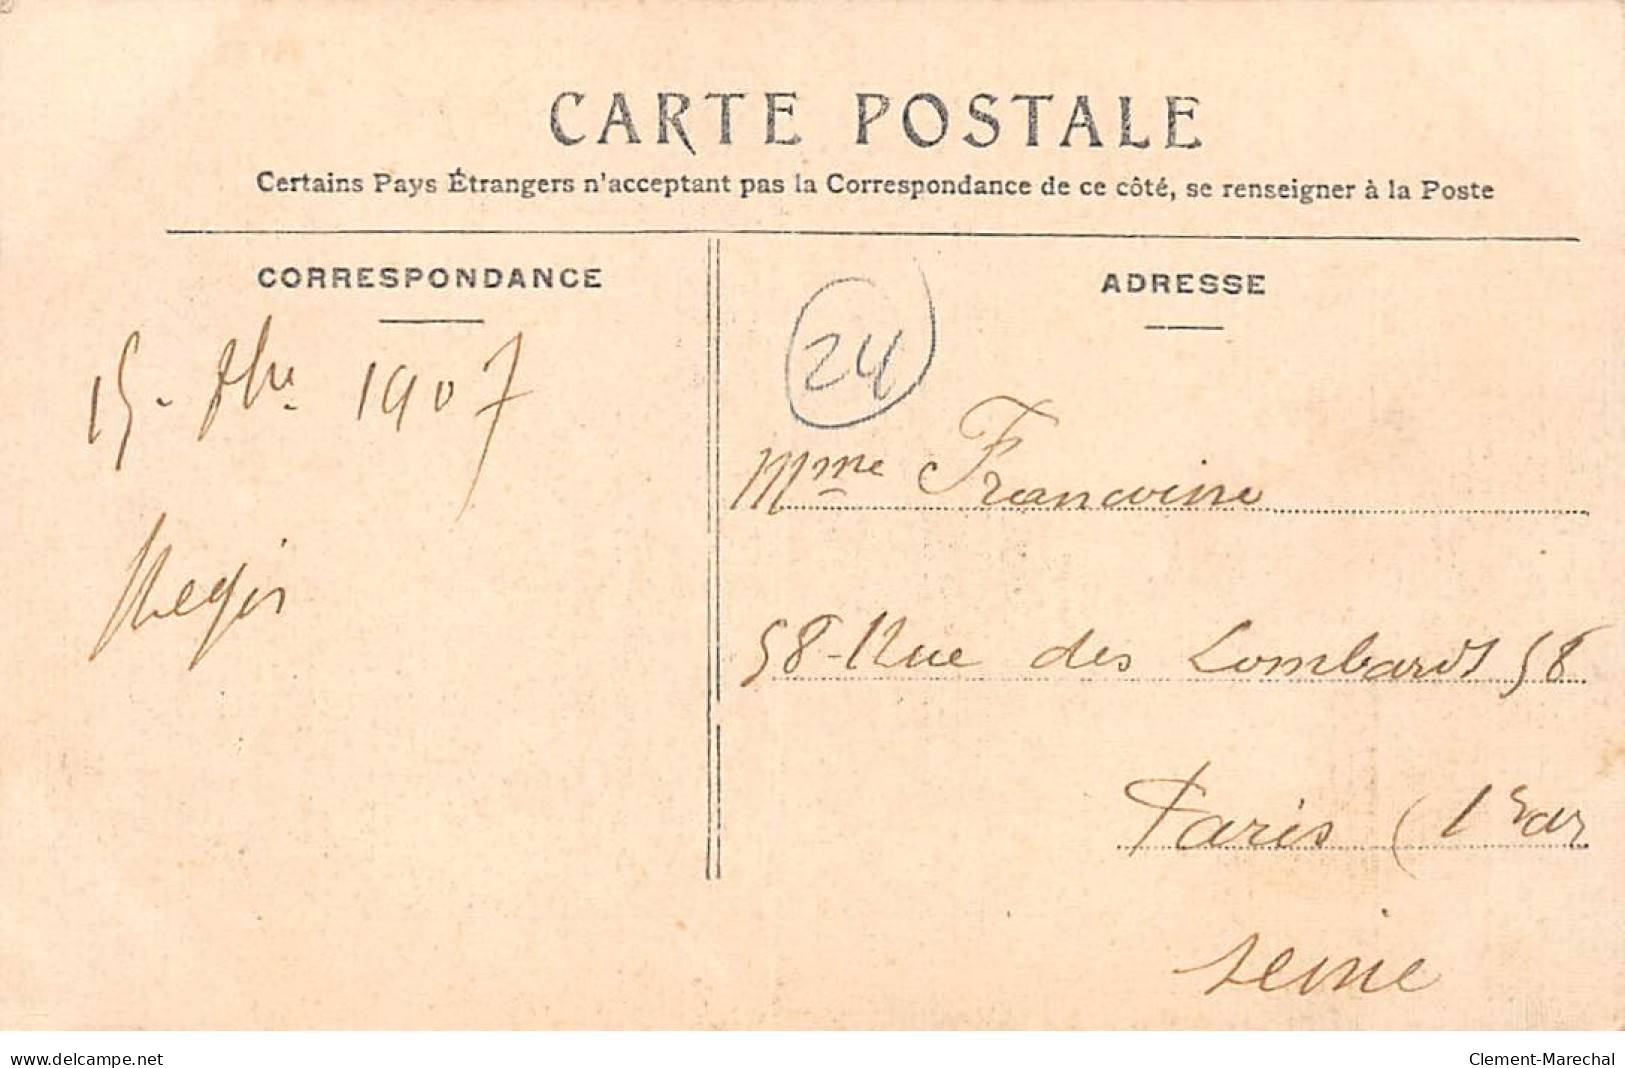 CARTE POSTALE
Certains Pays Étrangers n'acceptant pas la Correspondance de ce côté, se renseigner à la Poste
CORRESPONDANCE
ADRESSE
24
15. 1907
Regis
Mme Francoine
58 - Rue des Lombards 58
Paris (1er ar
Seine
www.delcampe.net
Clement-Marechal